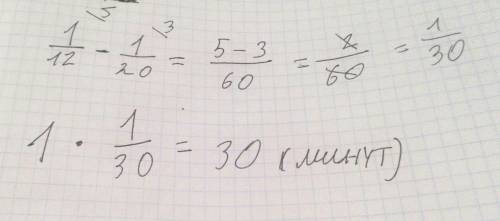 1/12 \5 - 1/20 \3 = 5-3/60 = 2/60 = 1/30
1 · 1/30 = 30 (минут)